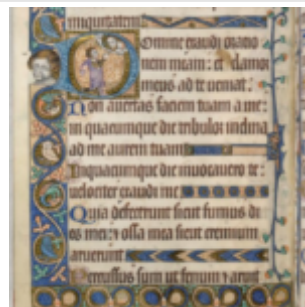 iniquitatem
Domine exaudi oratio
nem meam: et clamor
meus ad te ueniat:
Non auertas faciem tuam a me:
in quacumque die tribulor inclina
ad me aurem tuam
In quacumque die inuocauero te:
uelociter exaudi me
Quia defecerunt sicut fumus di
es mei: ossa mea sicut cremium
aruerunt
Percussus sum ut fenum aruit